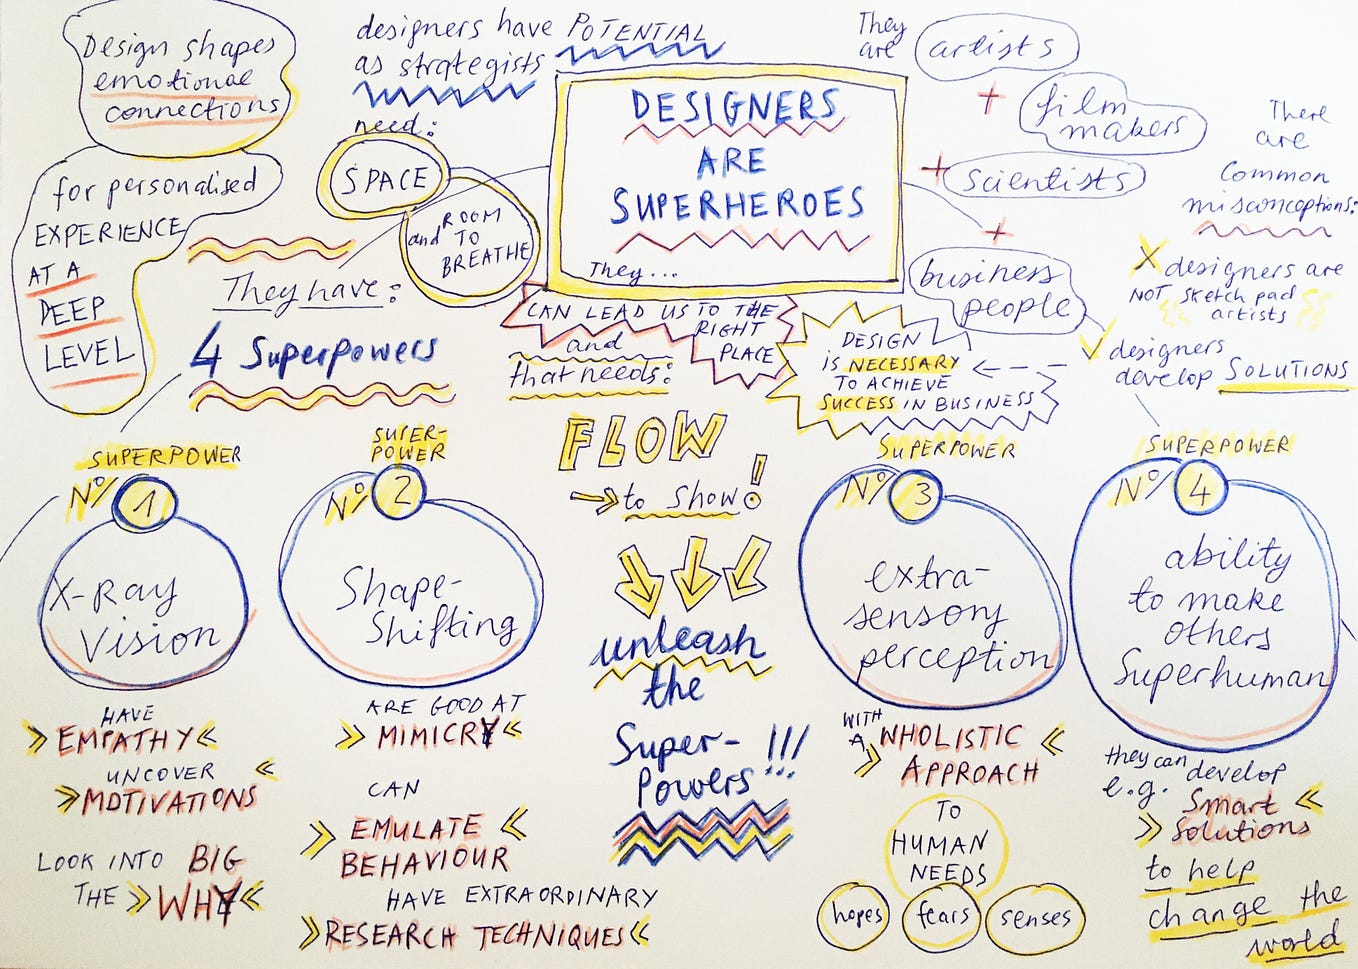 Design shapes
emotional
connections
for personalised
EXPERIENCE
AT A
DEEP
LEVEL
designers have POTENTIAL
as strategists
need:
SPACE
and ROOM
TO
BREATHE
They have:
4 Superpowers
DESIGNERS
ARE
SUPERHEROES
They...
CAN LEAD US TO THE
RIGHT
PLACE
and
that needs:
FLOW
to show!
unleash
the
Super-
Powers!!!
They
are
artists
+
film
makers
+
scientists
+
business
people
DESIGN
IS NECESSARY
TO ACHIEVE
SUCCESS IN BUSINESS
There
are
Common
misconceptions:
designers are
NOT sketch pad
artists
designers
develop SOLUTIONS
SUPERPOWER
N° 1
X-Ray
Vision
HAVE
EMPATHY
UNCOVER
MOTIVATIONS
LOOK INTO BIG
THE WHY
SUPER-
POWER
N° 2
Shape-
Shifting
ARE GOOD AT
MIMICRY
CAN
EMULATE
BEHAVIOUR
HAVE EXTRAORDINARY
RESEARCH TECHNIQUES
SUPERPOWER
N° 3
extra-
sensory
perception
WITH
A WHOLISTIC
APPROACH
TO
HUMAN
NEEDS
hopes
fears
senses
SUPERPOWER
N° 4
ability
to make
others
Superhuman
they can develop
e.g. Smart
Solutions
to help
change the
world